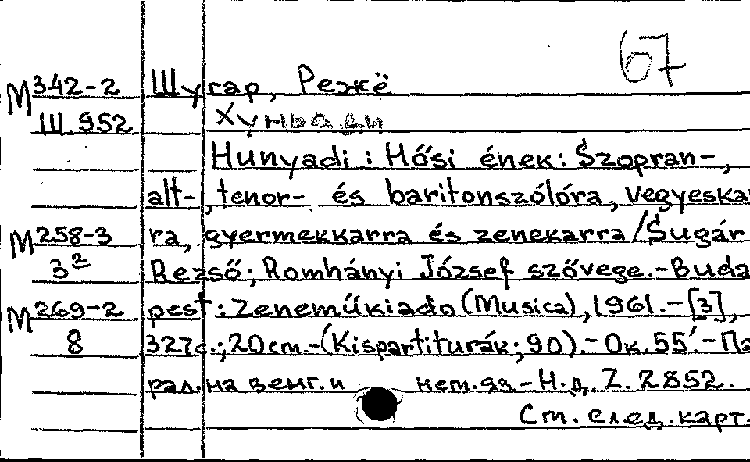 67
М342-2 Шугар, Режё
Ш952 Хуньади
Hunyadi : Hősi ének: Szopran-,
alt-, tenor- és baritonszólóra, vegyeskar-
М258-3 ra, gyermekkarra és zenekarra/Sugár
3² Rezső; Romhányi József szövege.-Buda
М269-2 pest: Zeneműkiado (Musica), 1961.-[3],
8 327с.; 20cm.-(Kispartiturák; 90).-Ок.55'.-Па
рал. на венг. и нем. яз.-Н.д. Z. 2852.
См. след. карт.